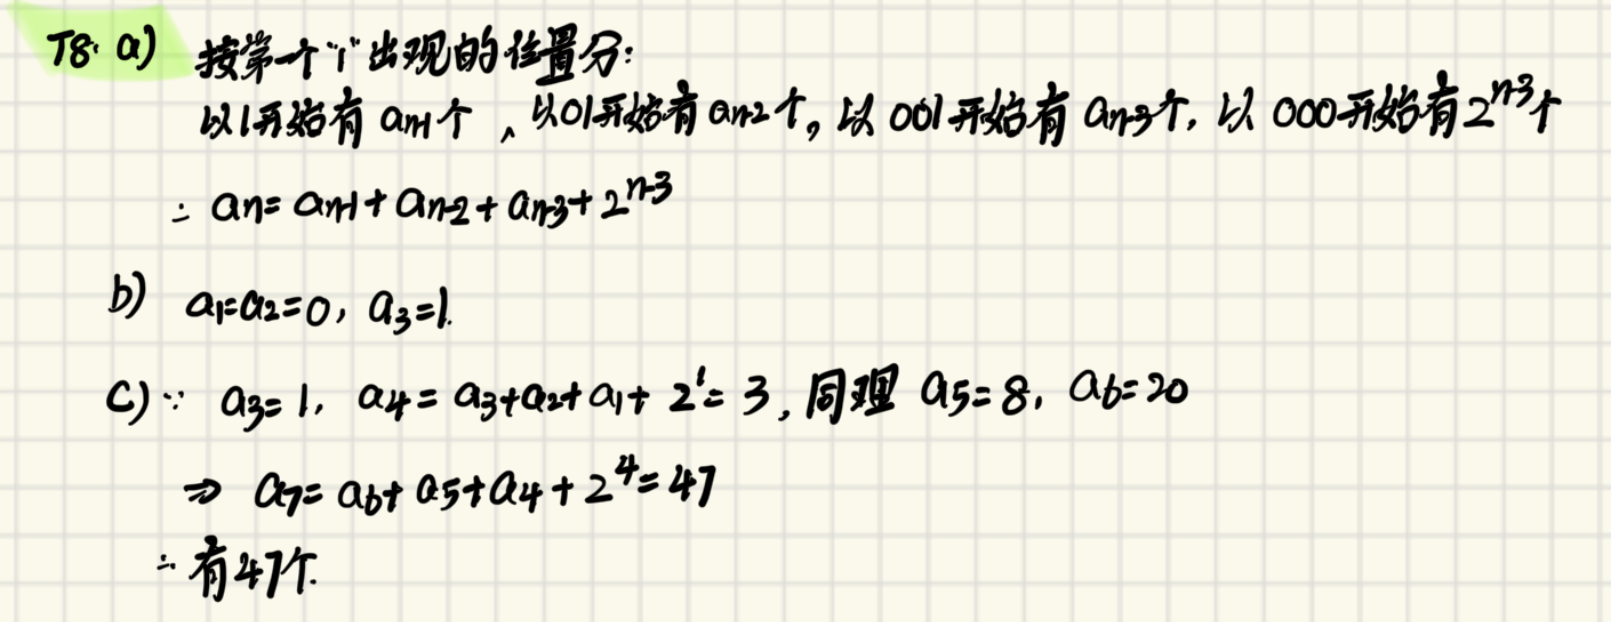 T8. a) 按第一个"1"出现的位置分:
以1开始有 aₙ₋₁个, 以01开始有 aₙ₋₂个, 以 001开始有 aₙ₋₃个, 以 000开始有 2ⁿ⁻³个
∴ aₙ = aₙ₋₁ + aₙ₋₂ + aₙ₋₃ + 2ⁿ⁻³
b) a₁=a₂=0, a₃=1.
c) ∵ a₃=1, a₄ = a₃+a₂+a₁+ 2¹= 3, 同理 a₅=8, a₆=20
⇒ a₇= a₆+ a₅+a₄ + 2⁴=47
∴ 有47个.